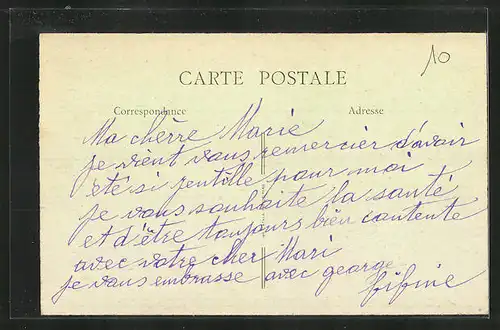 10
CARTE POSTALE
Correspondance
Adresse
Ma chèrre Marie
je vient vous remercier d'avoir
été si jentille pour moi
je vous souhaite la santé
et d'être toujours bien contente
avec votre cher Mari
je vous embrasse avec george
fifine